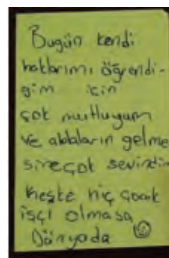 Bugün kendi
haklarımı öğrendi-
ğim için
çok mutluyum
ve ablaların gelme
sine çok sevindim
Keşke hiç çocuk
işçi olmasa
Dünyada